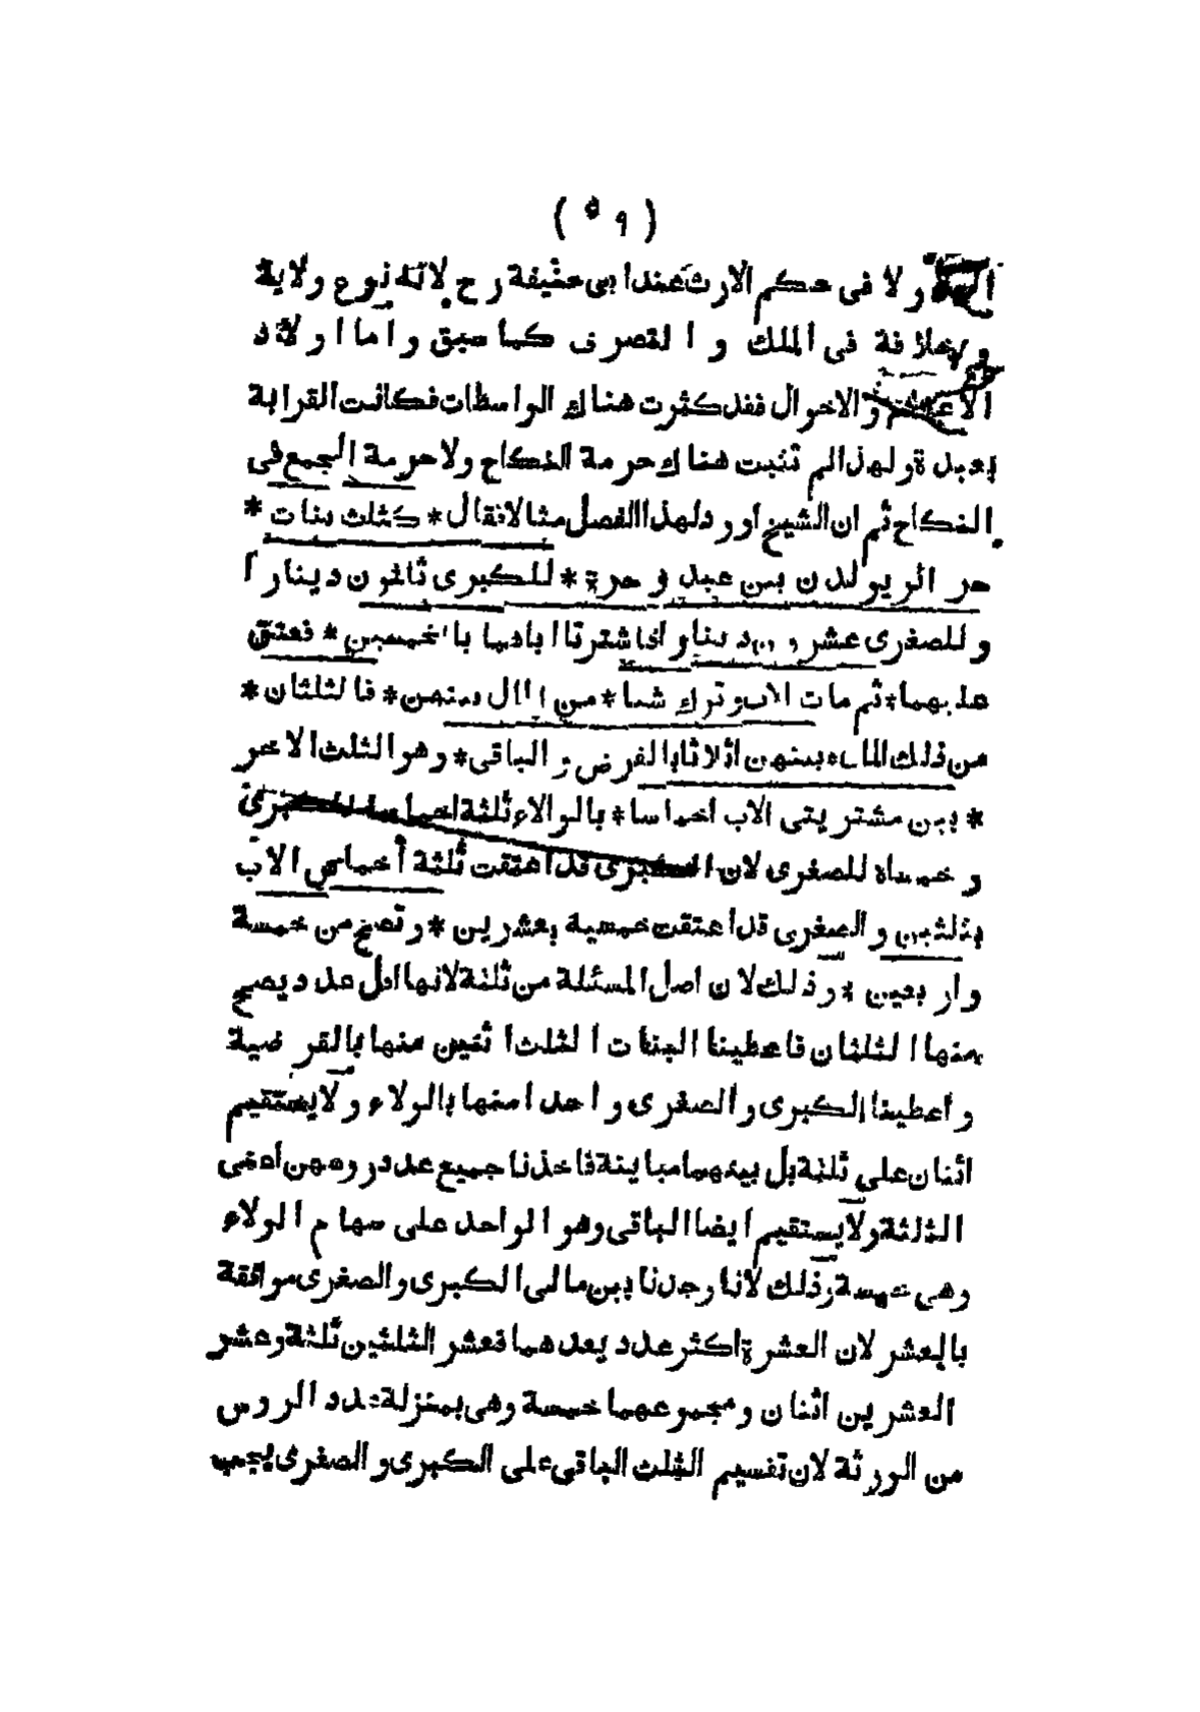 ( ٥٩ )
ولا فى حكم الارث عند ابى حنيفة رح لانه نوع ولاية
وخلافة فى الملك و التصرف كما سبق واما اولاد
الاعمام والاخوال فقد كثرت هناك الواسطات فكانت القرابة
بعيدة ولهذا لم تثبت هناك حرمة النكاح ولاحرمة الجمع فى
النكاح ثم ان الشيخ اورد لهذا الفصل مثالا فقال * كثلث بنات *
حر الريولدن بين عبد و حرة * للكبرى ثلثون دينارا
و للصغرى عشرون دينارا فاشترتا اباهما بالخمسين * فعتق
عليهما * ثم مات الاب وترك شيئا * من المال بينهن * فالثلثان *
من ذلك المال * بينهن اثلاثا بالفرض و الباقى * وهو الثلث الاخر
* بين مشتريتى الاب اخماسا * بالولاء ثلثة اخماسه للكبرى
و خمساه للصغرى لان الكبرى قد اعتقت ثلثة أخماس الاب
بثلثين و الصغرى قد اعتقت خمسيه بعشرين * وتصح من خمسة
واربعين * وذلك لان اصل المسئلة من ثلثة لانها اول عدد يصح
منها الثلثان فاعطينا البنات الثلث اثنين منها بالفرضية
واعطينا الكبرى والصغرى واحدا منها بالولاء ولا يستقيم
اثنان على ثلثة بل بينهما مباينة فاخذنا جميع عدد روسهن أعنى
الثلثة ولا يستقيم ايضا الباقى وهو الواحد على سهام الولاء
وهى خمسة وذلك لانا وجدنا بين مالى الكبرى والصغرى موافقة
بالعشر لان العشرة اكثر عدد يعدهما فعشر الثلثين ثلثة وعشر
العشرين اثنان ومجموعهما خمسة وهى بمنزلة عدد الروس
من الورثة لان تقسيم الثلث الباقى على الكبرى و الصغرى يجب